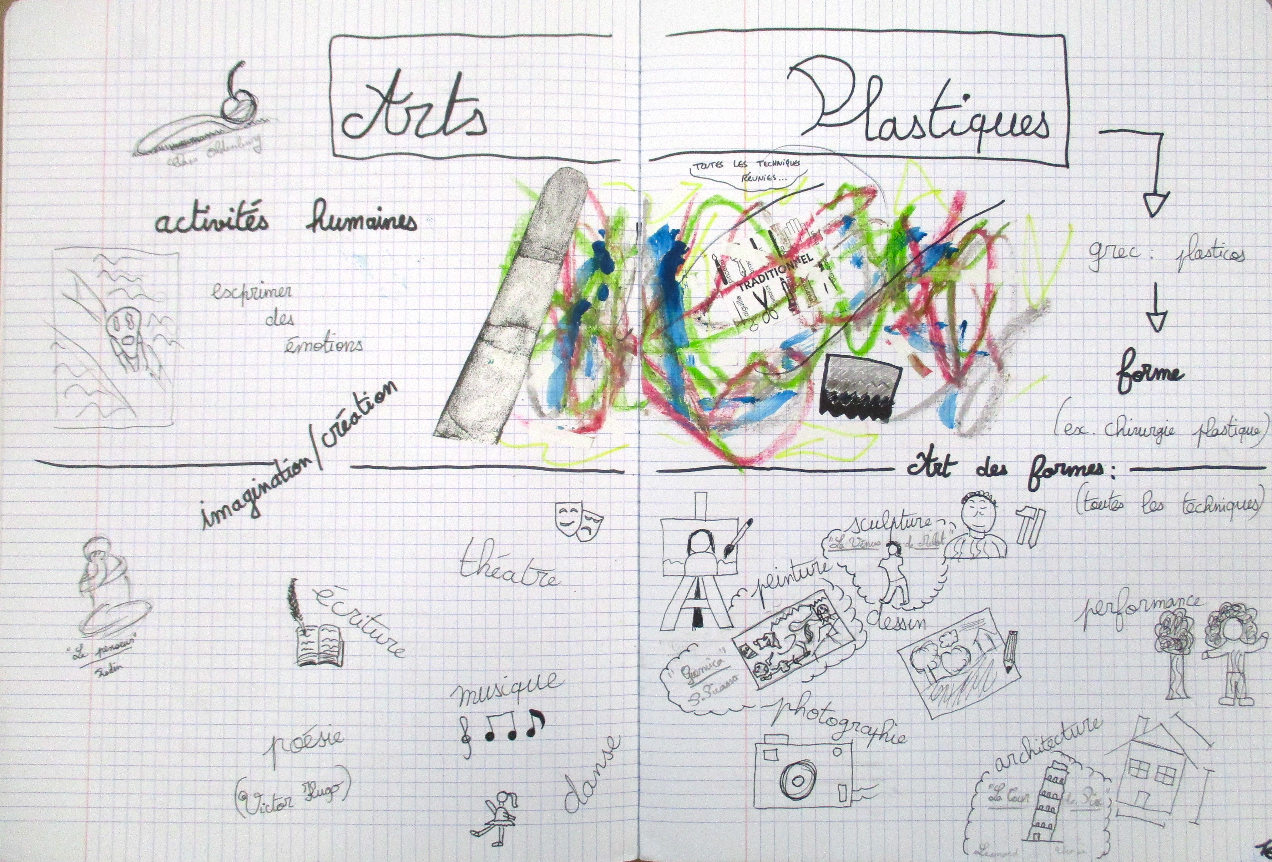 Arts Plastiques
Oldenburg
TOUTES LES TECHNIQUES
RÉUNIES...
activités humaines
exprimer
des
émotions
imagination/création
TRADITIONNEL
grec : plasticos
forme
(ex. chirurgie plastique)
Art des formes :
(toutes les techniques)
"Le penseur"
Rodin
écriture
théatre
musique
poésie
(Victor Hugo)
danse
sculpture
peinture
dessin
"Gernica"
P. Picasso
photographie
performance
architecture